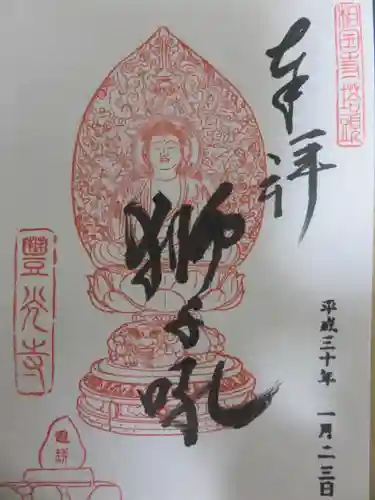 相国寺塔頭
奉拝
平成三十年 一月二三日
獅子吼
豊光寺